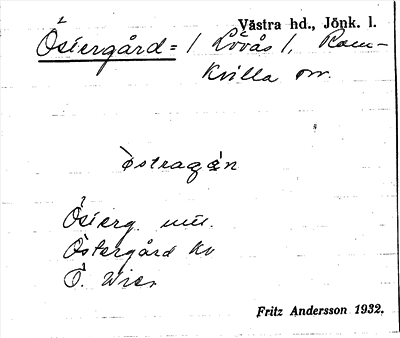 Västra hd., Jönk. l.
Östergård = / Lövås /, Ram-
kvilla sn.
östragán
Österg. utu.
Östergård kv
Ö. Wies
Fritz Andersson 1932.